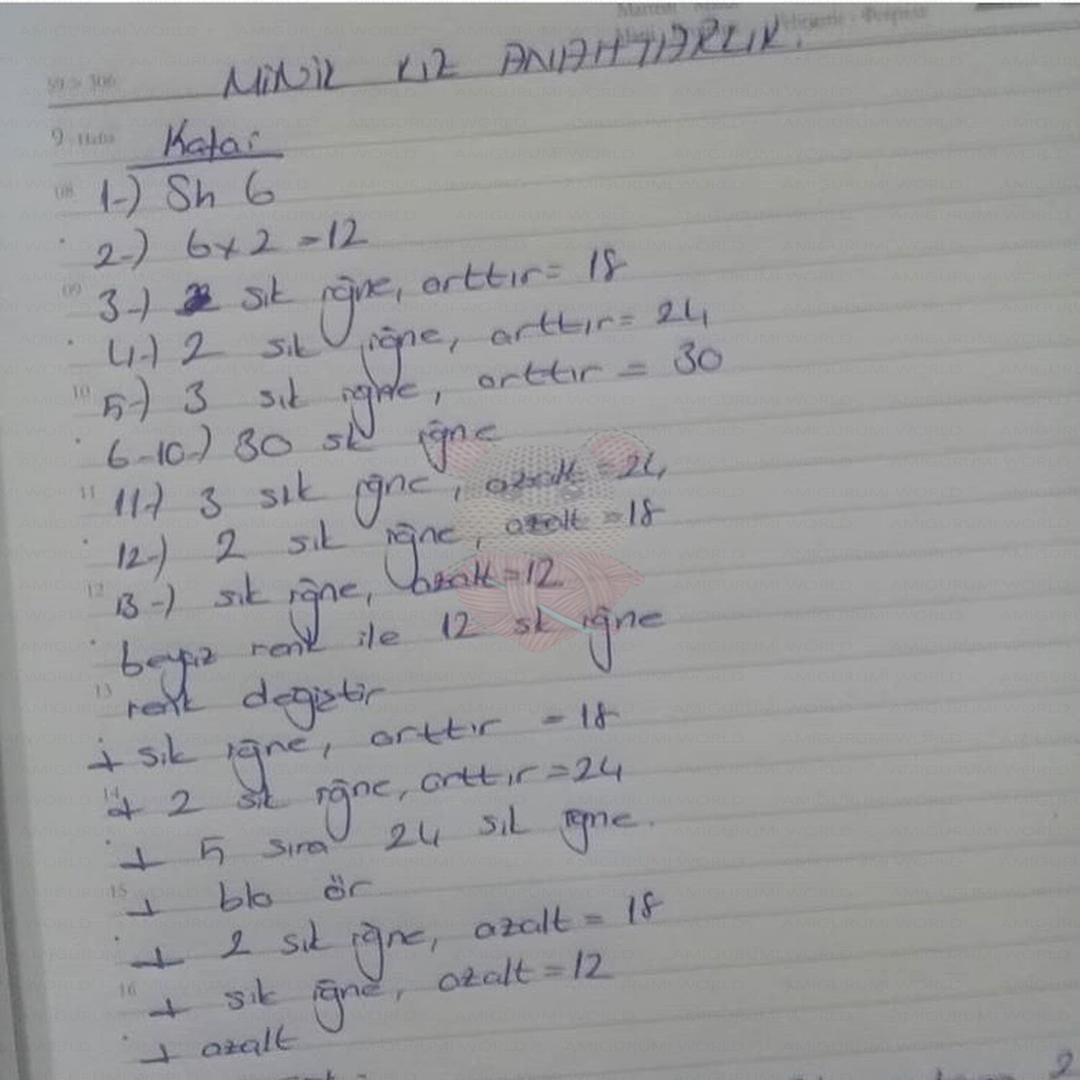 MiNiK KIZ ANAHTARLIK.
9. Hafta
Kafa:
08
1-) Sh 6
2-) 6x2 =12
09
3-) sık iğne, arttır= 18
4-) 2 sık iğne, arttır= 24
10
5-) 3 sık iğne, arttır = 30
6-10-) 30 sk iğne
11
11-) 3 sık iğne, azalt =24
12-) 2 sık iğne, azalt =18
12
13-) sık iğne, azalt=12
beyaz renk ile 12 sk iğne
13
renk değiştir
+ sık iğne, arttır =18
14
+ 2 sık iğne, arttır=24
+ 5 sıra 24 sık iğne.
15
+ blo ör
+ 2 sık iğne, azalt = 18
16
+ sık iğne, azalt=12
+ azalt
2
AMIGURUMI WORLD